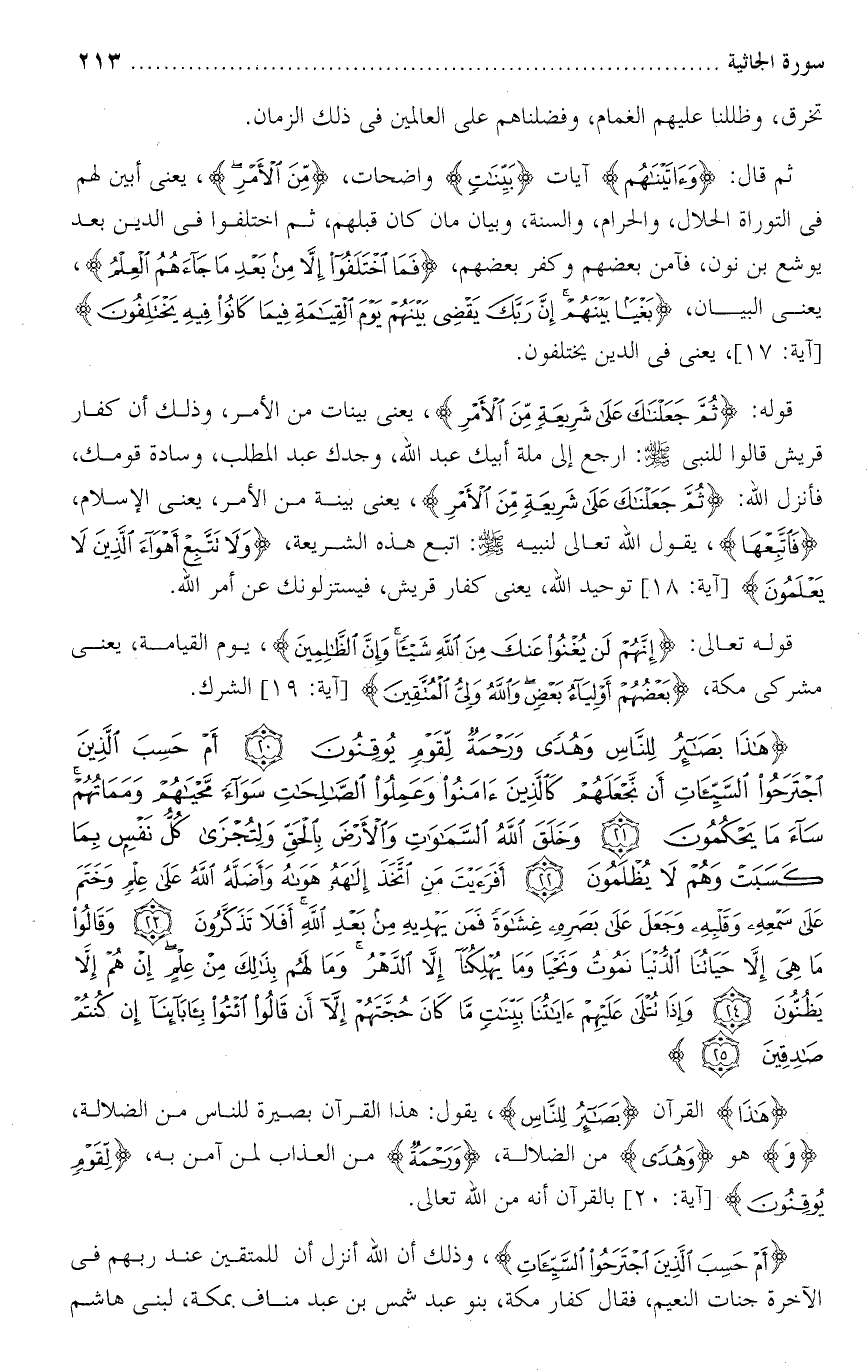 سورة الجاثية ........................................................................ ٢١٣
تخرق، وظللنا عليهم الغمام، وفضلناهم على العالمين فى ذلك الزمان.
ثم قال: ﴿وَءَاتَيْنَٰهُم﴾ آيات ﴿بَيِّنَٰتٍ﴾ واضحات، ﴿مِّنَ ٱلْأَمْرِۖ﴾، يعنى أبين لهم
فى التوراة الحلال، والحرام، والسنة، وبيان مان كان قبلهم، ثم اختلفوا فى الدين بعد
يوشع بن نون، فآمن بعضهم وكفر بعضهم، ﴿فَمَا ٱخْتَلَفُوٓا۟ إِلَّا مِنۢ بَعْدِ مَا جَآءَهُمُ ٱلْعِلْمُ﴾،
يعنى البيان، ﴿بَغْيًۢا بَيْنَهُمْۚ إِنَّ رَبَّكَ يَقْضِى بَيْنَهُمْ يَوْمَ ٱلْقِيَٰمَةِ فِيمَا كَانُوا۟ فِيهِ يَخْتَلِفُونَ﴾
[آية: ١٧]، يعنى فى الدين يختلفون.
قوله: ﴿ثُمَّ جَعَلْنَٰكَ عَلَىٰ شَرِيعَةٍ مِّنَ ٱلْأَمْرِ﴾، يعنى بينات من الأمر، وذلك أن كفار
قريش قالوا للنبى ﷺ: ارجع إلى ملة أبيك عبد الله، وجدك عبد المطلب، وسادة قومك،
فأنزل الله: ﴿ثُمَّ جَعَلْنَٰكَ عَلَىٰ شَرِيعَةٍ مِّنَ ٱلْأَمْرِ﴾، يعنى بينة من الأمر، يعنى الإسلام،
﴿فَٱتَّبِعْهَا﴾، يقول الله تعالى لنبيه ﷺ: اتبع هذه الشريعة، ﴿وَلَا تَتَّبِعْ أَهْوَآءَ ٱلَّذِينَ لَا
يَعْلَمُونَ﴾ [آية: ١٨] توحيد الله، يعنى كفار قريش، فيستزلونك عن أمر الله.
قوله تعالى: ﴿إِنَّهُمْ لَن يُغْنُوا۟ عَنكَ مِنَ ٱللَّهِ شَيْـًٔاۚ وَإِنَّ ٱلظَّٰلِمِينَ﴾، يوم القيامة، يعنى
مشركى مكة، ﴿بَعْضُهُمْ أَوْلِيَآءُ بَعْضٍۖ وَٱللَّهُ وَلِىُّ ٱلْمُتَّقِينَ﴾ [آية: ١٩] الشرك.
﴿هَٰذَا بَصَٰٓئِرُ لِلنَّاسِ وَهُدًى وَرَحْمَةٌ لِّقَوْمٍ يُوقِنُونَ ٢٠ أَمْ حَسِبَ ٱلَّذِينَ
ٱجْتَرَحُوا۟ ٱلسَّيِّـَٔاتِ أَن نَّجْعَلَهُمْ كَٱلَّذِينَ ءَامَنُوا۟ وَعَمِلُوا۟ ٱلصَّٰلِحَٰتِ سَوَآءً مَّحْيَاهُمْ وَمَمَاتُهُمْۚ
سَآءَ مَا يَحْكُمُونَ ٢١ وَخَلَقَ ٱللَّهُ ٱلسَّمَٰوَٰتِ وَٱلْأَرْضَ بِٱلْحَقِّ وَلِتُجْزَىٰ كُلُّ نَفْسٍۭ بِمَا
كَسَبَتْ وَهُمْ لَا يُظْلَمُونَ ٢٢ أَفَرَءَيْتَ مَنِ ٱتَّخَذَ إِلَٰهَهُۥ هَوَىٰهُ وَأَضَلَّهُ ٱللَّهُ عَلَىٰ عِلْمٍ وَخَتَمَ
عَلَىٰ سَمْعِهِۦ وَقَلْبِهِۦ وَجَعَلَ عَلَىٰ بَصَرِهِۦ غِشَٰوَةً فَمَن يَهْدِيهِ مِنۢ بَعْدِ ٱللَّهِۚ أَفَلَا تَذَكَّرُونَ ٢٣ وَقَالُوا۟
مَا هِىَ إِلَّا حَيَاتُنَا ٱلدُّنْيَا نَمُوتُ وَنَحْيَا وَمَا يُهْلِكُنَآ إِلَّا ٱلدَّهْرُۚ وَمَا لَهُم بِذَٰلِكَ مِنْ عِلْمٍۖ إِنْ هُمْ إِلَّا
يَظُنُّونَ ٢٤ وَإِذَا تُتْلَىٰ عَلَيْهِمْ ءَايَٰتُنَا بَيِّنَٰتٍ مَّا كَانَ حُجَّتَهُمْ إِلَّآ أَن قَالُوا۟ ٱئْتُوا۟ بِـَٔابَآئِنَآ إِن كُنتُمْ
صَٰدِقِينَ ٢٥﴾
﴿هَٰذَا﴾ القرآن ﴿بَصَٰٓئِرُ لِلنَّاسِ﴾، يقول: هذا القرآن بصيرة للناس من الضلالة،
﴿وَ﴾ هو ﴿وَهُدًى﴾ من الضلالة، ﴿وَرَحْمَةٌ﴾ من العذاب لمن آمن به، ﴿لِّقَوْمٍ
يُوقِنُونَ﴾ [آية: ٢٠] بالقرآن أنه من الله تعالى.
﴿أَمْ حَسِبَ ٱلَّذِينَ ٱجْتَرَحُوا۟ ٱلسَّيِّـَٔاتِ﴾، وذلك أن الله أنزل أن للمتقين عند ربهم فى
الآخرة جنات النعيم، فقال كفار مكة، بنو عبد شمس بن عبد مناف بمكة، لبنى هاشم